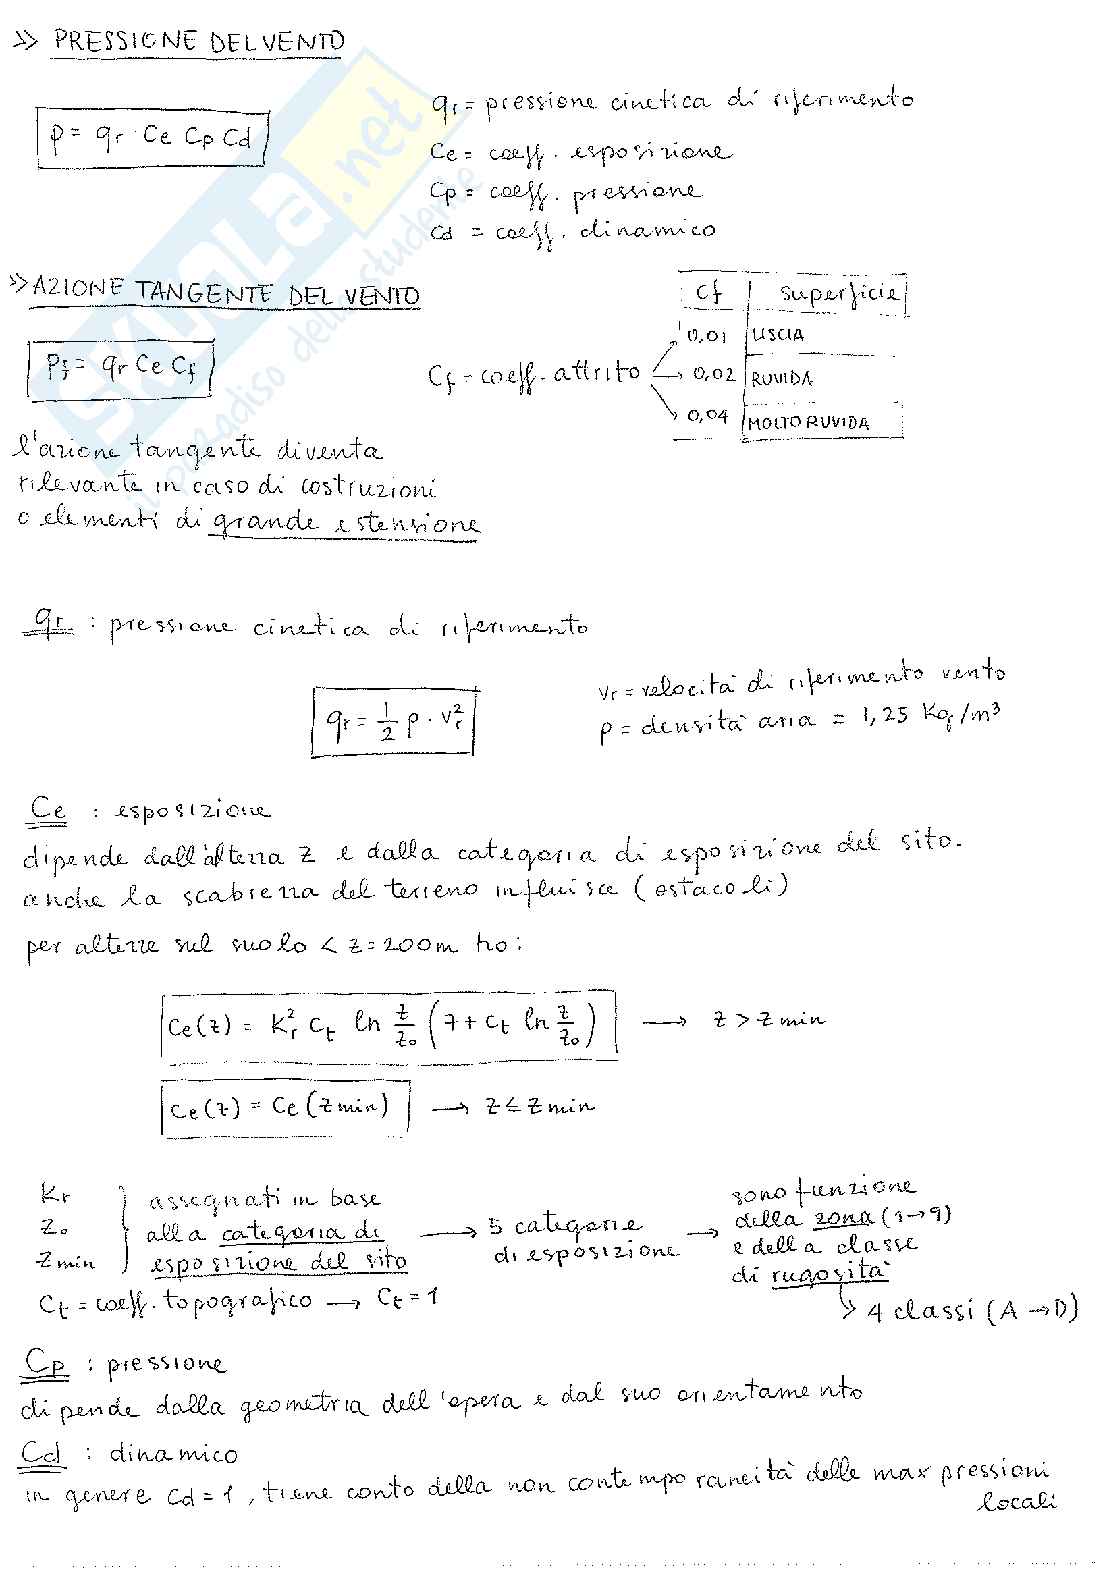 >> PRESSIONE DEL VENTO
p = qr · Ce Cp Cd
qr = pressione cinetica di riferimento
Ce = coeff. esposizione
Cp = coeff. pressione
Cd = coeff. dinamico
>> AZIONE TANGENTE DEL VENTO
Pf = qr Ce Cf
Cf = coeff. attrito
Cf | superficie
0,01 LISCIA
0,02 RUVIDA
0,04 MOLTO RUVIDA
l'azione tangente diventa
rilevante in caso di costruzioni
o elementi di grande estensione
qr : pressione cinetica di riferimento
qr = 1/2 ρ · vr²
vr = velocità di riferimento vento
ρ = densità aria = 1,25 Kg/m³
Ce : esposizione
dipende dall'altezza z e dalla categoria di esposizione del sito.
anche la scabrezza del terreno influisce (ostacoli)
per altezze sul suolo < z = 200m ho:
Ce(z) = Kr² Ct ln z/z₀ (7 + Ct ln z/z₀) → z > z min
Ce(z) = Ce(z min) → z ≤ z min
Kr
z₀
z min
assegnati in base
alla categoria di
esposizione del sito
→ 5 categorie
di esposizione
→ sono funzione
della zona (1→9)
e della classe
di rugosità
↳ 4 classi (A → D)
Ct = coeff. topografico → Ct = 1
Cp : pressione
dipende dalla geometria dell'opera e dal suo orientamento
Cd : dinamico
in genere Cd = 1, tiene conto della non contemporaneità delle max pressioni
locali
SKUOLA.net
il paradiso dello studente